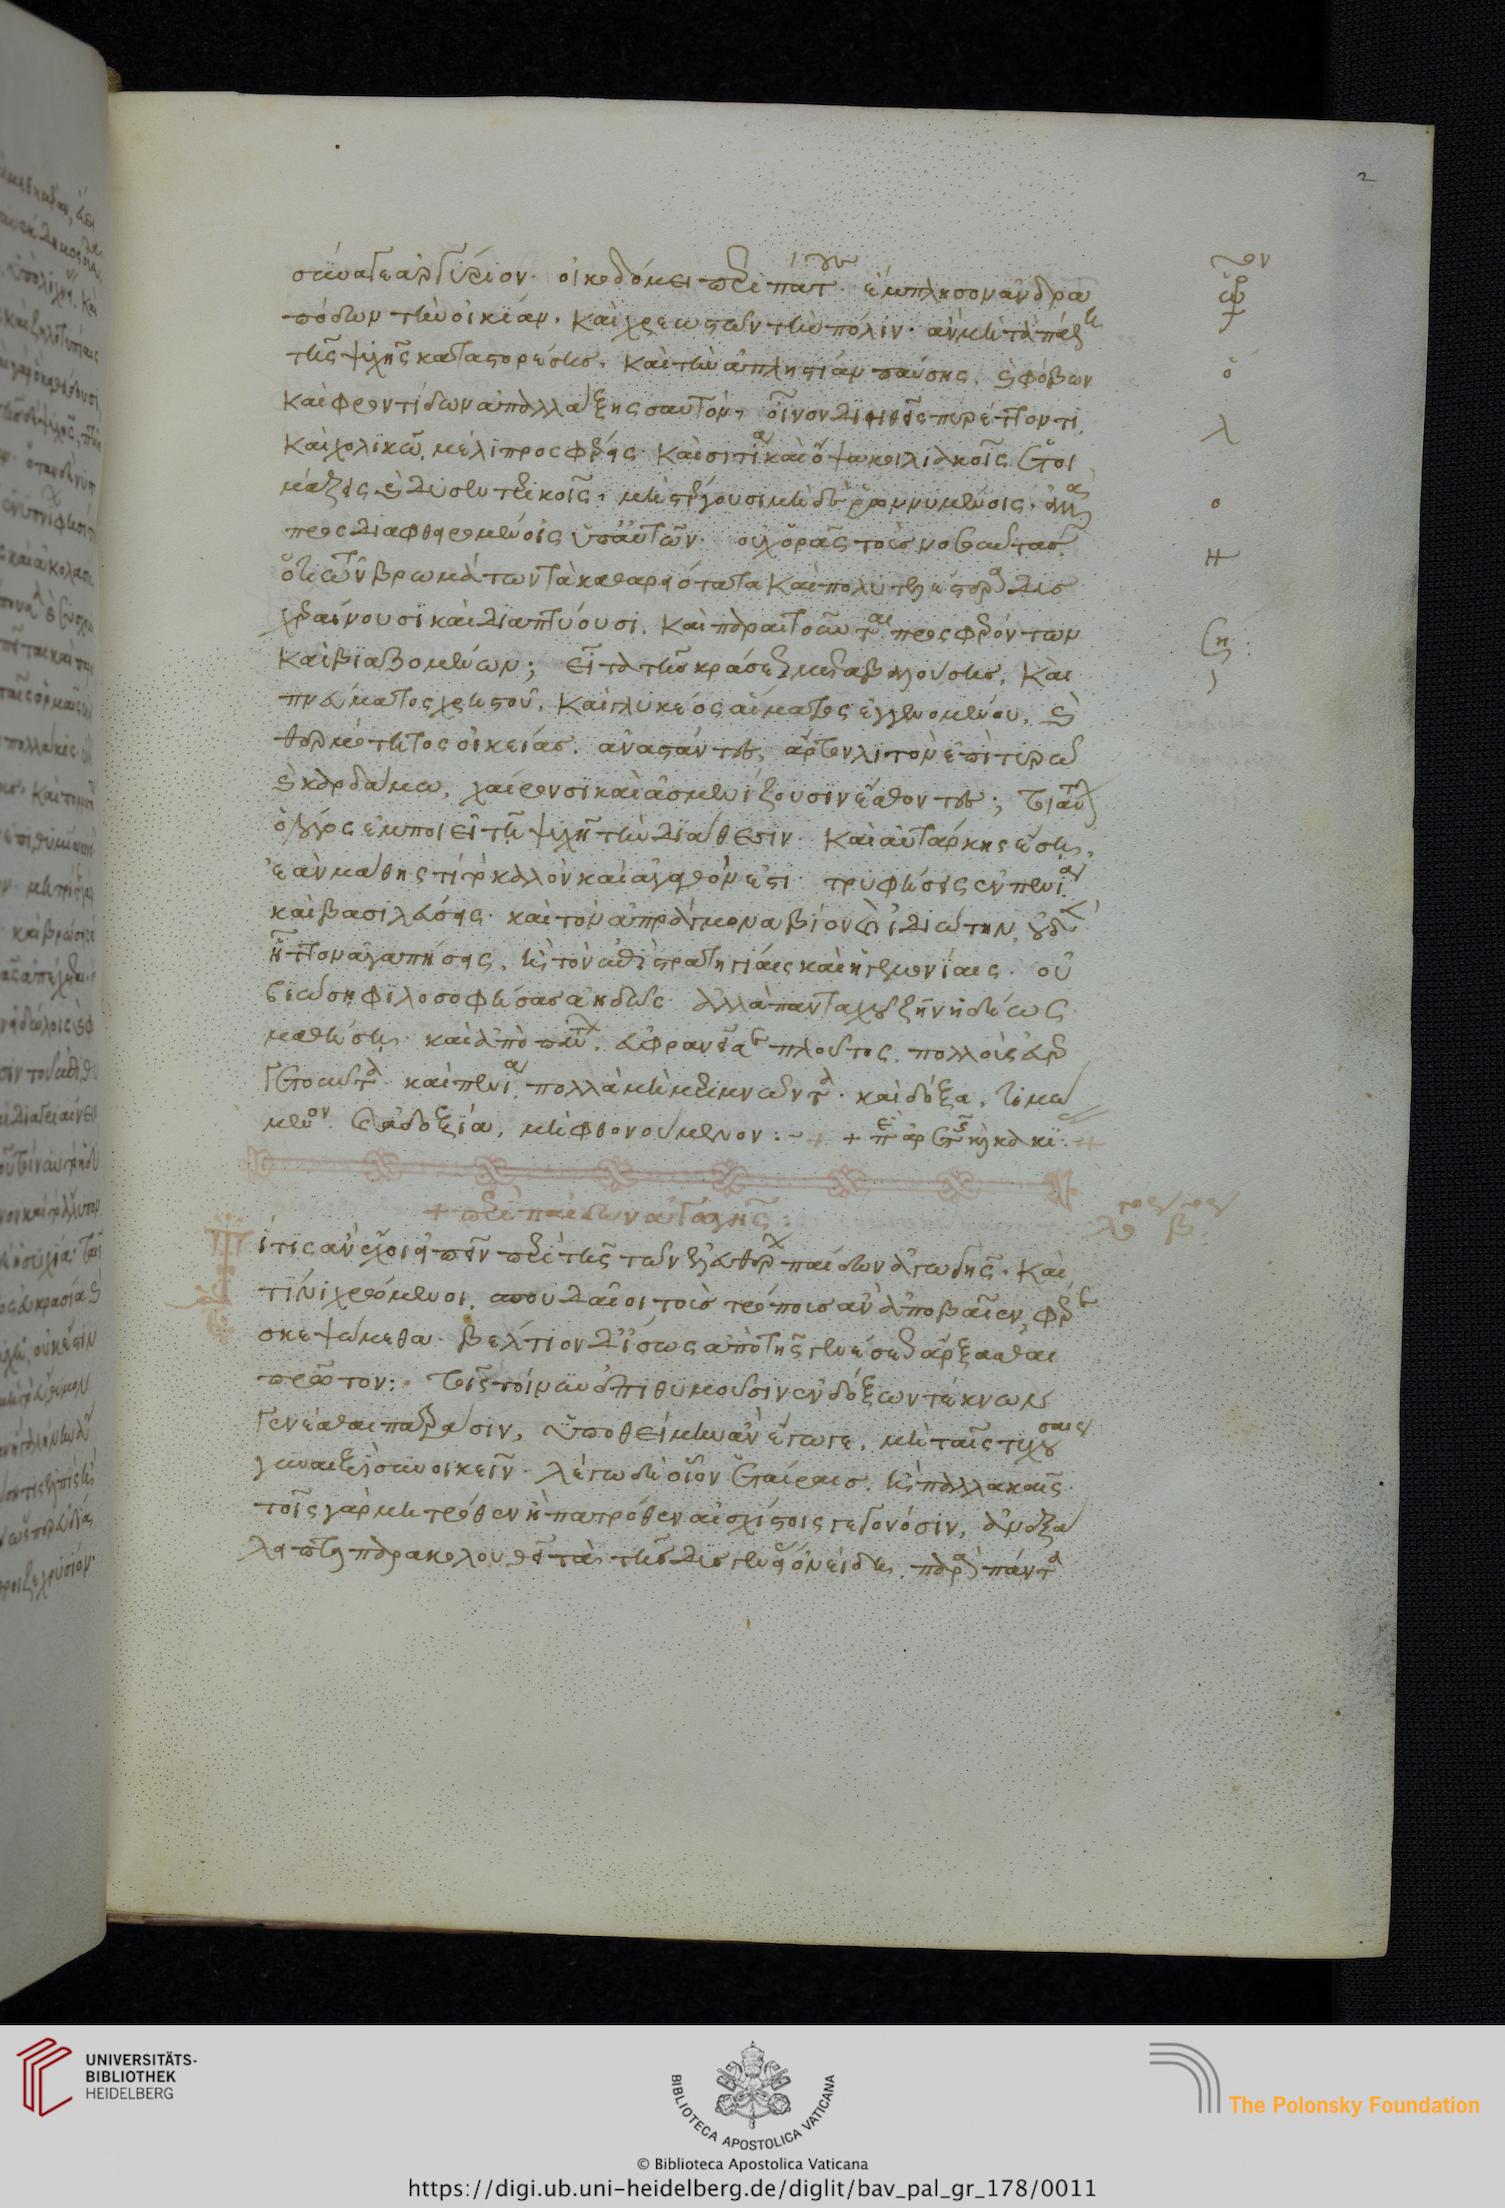 2
σύναγε ἀργύριον. οἰκοδόμει περιπάτους. ἔμπλησον ἀνδρα
πόδων τὴν οἰκίαν. καὶ χρεωστῶν τὴν πόλιν. ἂν μὴ τὰ πάθη
τῆς ψυχῆς καταστορέσης. καὶ τὴν ἀπληστίαν παύσης. καὶ φόβων
καὶ φροντίδων ἀπαλλάξης σαυτόν, οἶνον διηθεῖς πυρέττοντι.
καὶ χολικῶ. μέλι προσφέρεις. καὶ σιτία καὶ ὄψα κοιλιακοῖς ἑτοι
μάζεις καὶ δυσεντερικοῖς. μὴ στέγουσι μηδὲ ῥωννυμένοις. ἀλλὰ
προσδιαφθειρομένοις ὑπ' αὐτῶν. οὐχ ὁρᾶς τοὺς νοσοῦντας
ὅτι τῶν βρωμάτων τὰ καθαριότατα καὶ πολυτελέστατα δυσ
χεραίνουσι καὶ διαπτύουσι. καὶ παραιτοῦνται προσφερόντων
καὶ βιαζομένων; εἶτα τῆς κράσεως μεταβαλούσης. καὶ
πνεύματος χρηστοῦ. καὶ γλυκέος αἵματος ἐγγενομένου. καὶ
θερμότητος οἰκείας. ἀναστάντες, ἄρτον λιτὸν ἐπὶ τυρῶ
καὶ καρδάμω. χαίρουσι καὶ ἀσμενίζουσιν ἐσθίοντες; τοιαύτην
ὁ λόγος ἐμποιεῖ τῆ ψυχῆ τὴν διάθεσιν. καὶ αὐτάρκης ἔση.
ἐὰν μάθης τί τὸ καλὸν καὶ ἀγαθόν ἐστι. τρυφήσεις ἐν πενία.
καὶ βασιλεύσεις. καὶ τὸν ἀπράγμονα βίον καὶ ἰδιώτην, οὐδὲν
ἧττον ἀγαπήσεις. ἢ τὸν ἐπὶ στρατηγίαις καὶ ἡγεμονίαις. οὐ
βιώση φιλοσοφήσας ἀηδῶς. ἀλλὰ πανταχοῦ ζῆν ἡδέως
μαθήση. καὶ ἀπὸ πάντων. εὐφρανεῖ σε πλοῦτος. πολλοὺς εὐερ
γετοῦντα. καὶ πενία, πολλὰ μὴ μεριμνῶντα. καὶ δόξα, τιμώ
μενον. καὶ ἀδοξία, μὴ φθονούμενον:
+ περὶ παίδων ἀγωγῆς:
Τί τις ἂν ἔχοι εἰπεῖν περὶ τῆς τῶν ἐλευθέρων παίδων ἀγωγῆς. καὶ
τίνι χρώμενοι. σπουδαῖοι τοὺς τρόπους ἂν ἀποβαῖεν, φέρε
σκεψώμεθα. βέλτιον δ' ἴσως ἀπὸ τῆς γενέσεως ἄρξασθαι
πρῶτον: τοῖς τοίνυν ἐπιθυμοῦσιν ἐνδόξων τέκνων
γενέσθαι πατράσιν, ὑποθείμην ἂν ἔγωγε. μὴ ταῖς τυχούσαις
γυναιξὶ συνοικεῖν. λέγω δὴ οἷον ἑταίραις. ἢ παλλακαῖς.
τοῖς γὰρ μητρόθεν ἢ πατρόθεν αἰσχίστοις γεγονόσιν, ἀνεξά
λειπτα παρακολουθεῖ τὰ τῆς δυσγενείας ὀνείδη. παρὰ πάντα
UNIVERSITÄTS-
BIBLIOTHEK
HEIDELBERG
BIBLIOTECA APOSTOLICA VATICANA
© Biblioteca Apostolica Vaticana
The Polonsky Foundation
https://digi.ub.uni-heidelberg.de/diglit/bav_pal_gr_178/0011